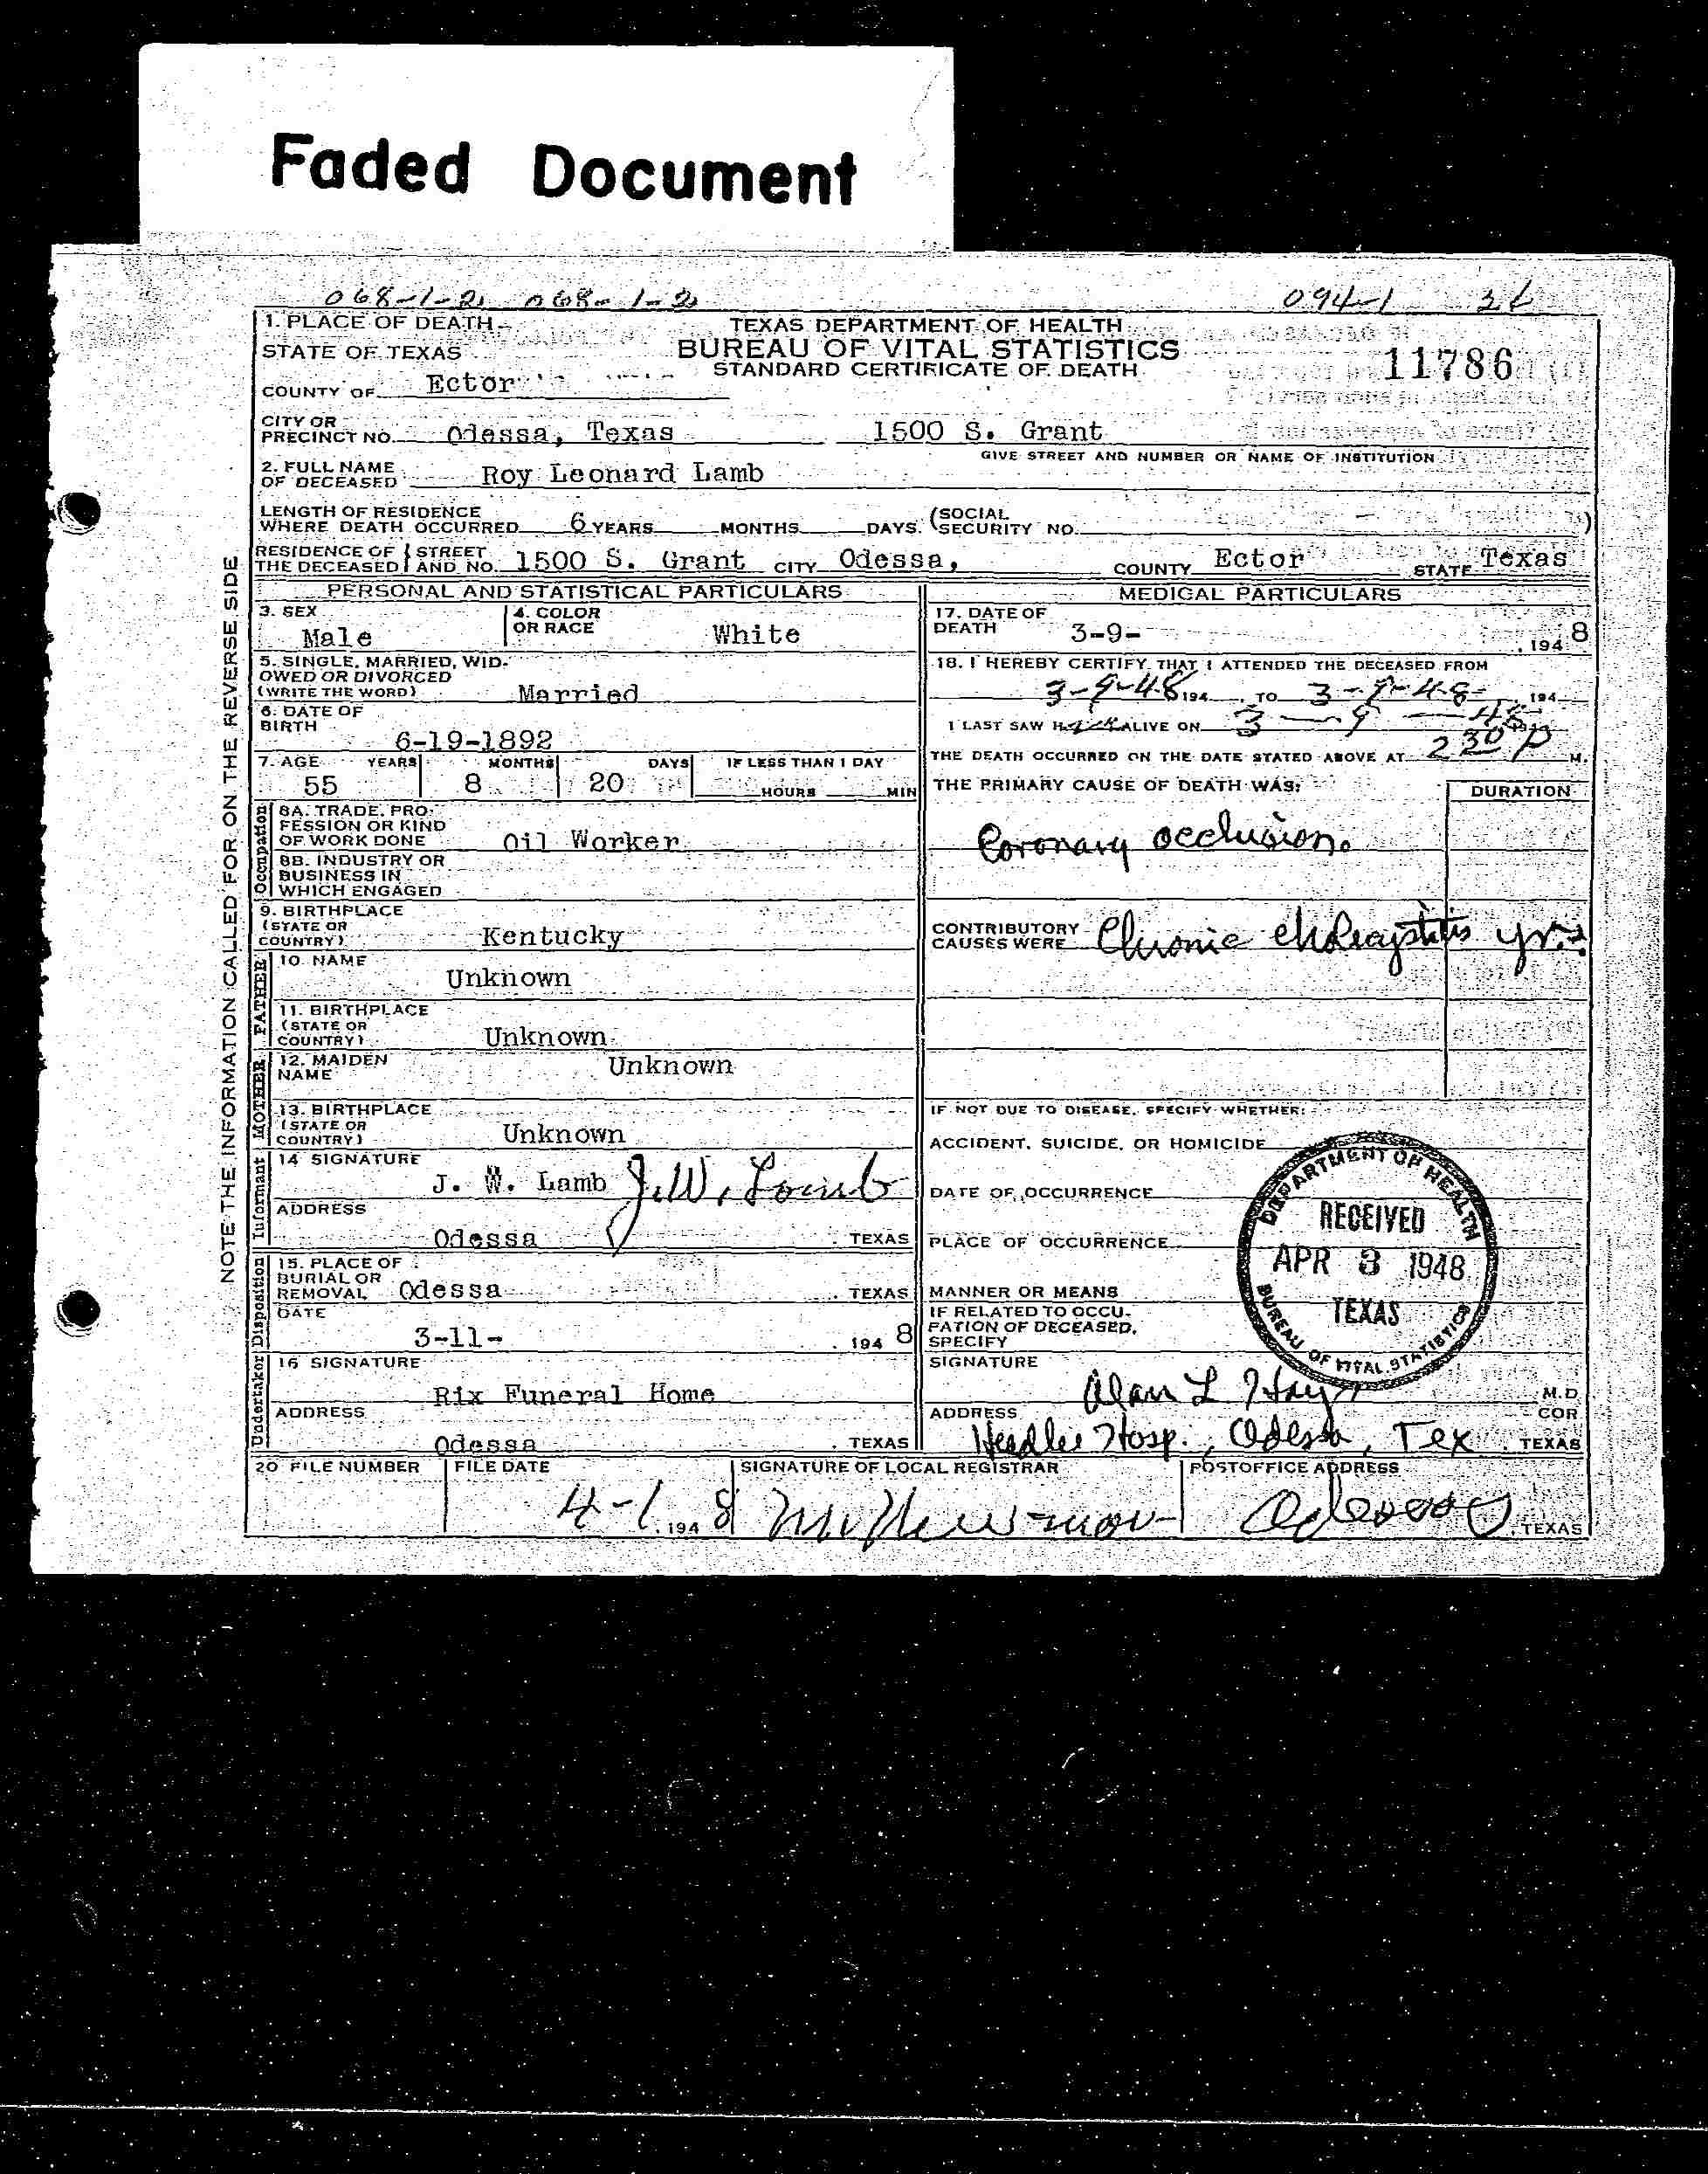 Faded Document
068-1-2 068-1-2 094-1
1. PLACE OF DEATH TEXAS DEPARTMENT OF HEALTH
STATE OF TEXAS BUREAU OF VITAL STATISTICS
STANDARD CERTIFICATE OF DEATH 11786
COUNTY OF Ector
CITY OR PRECINCT NO. Odessa, Texas 1500 S. Grant
GIVE STREET AND NUMBER OR NAME OF INSTITUTION
2. FULL NAME OF DECEASED Roy Leonard Lamb
LENGTH OF RESIDENCE WHERE DEATH OCCURRED 6 YEARS MONTHS DAYS. (SOCIAL SECURITY NO. )
RESIDENCE OF THE DECEASED STREET AND NO. 1500 S. Grant CITY Odessa, COUNTY Ector STATE Texas
NOTE THE INFORMATION CALLED FOR ON THE REVERSE SIDE
PERSONAL AND STATISTICAL PARTICULARS
3. SEX Male 4. COLOR OR RACE White
5. SINGLE, MARRIED, WIDOWED OR DIVORCED (WRITE THE WORD) Married
6. DATE OF BIRTH 6-19-1892
7. AGE YEARS MONTHS DAYS IF LESS THAN 1 DAY
55 8 20 HOURS MIN
Occupation
8A. TRADE, PRO-
FESSION OR KIND
OF WORK DONE Oil Worker
8B. INDUSTRY OR
BUSINESS IN
WHICH ENGAGED
9. BIRTHPLACE
(STATE OR
COUNTRY) Kentucky
FATHER
10. NAME Unknown
11. BIRTHPLACE
(STATE OR
COUNTRY) Unknown
MOTHER
12. MAIDEN
NAME Unknown
13. BIRTHPLACE
(STATE OR
COUNTRY) Unknown
Informant
14 SIGNATURE
J. W. Lamb J.W. Lamb
ADDRESS
Odessa TEXAS
Disposition
15. PLACE OF
BURIAL OR
REMOVAL Odessa TEXAS
DATE
3-11- 194 8
Undertaker
16 SIGNATURE
Rix Funeral Home
ADDRESS
Odessa TEXAS
MEDICAL PARTICULARS
17. DATE OF
DEATH 3-9- , 194 8
18. I HEREBY CERTIFY THAT I ATTENDED THE DECEASED FROM
3-9-48 194 , TO 3-9-48 , 194
I LAST SAW H ALIVE ON 3 - 9 - 48
THE DEATH OCCURRED ON THE DATE STATED ABOVE AT 2 30 P M.
THE PRIMARY CAUSE OF DEATH WAS: DURATION
Coronary occlusion.
CONTRIBUTORY
CAUSES WERE Chronic cholecystitis yrs.
IF NOT DUE TO DISEASE, SPECIFY WHETHER:
ACCIDENT, SUICIDE, OR HOMICIDE
DATE OF OCCURRENCE
PLACE OF OCCURRENCE
MANNER OR MEANS
IF RELATED TO OCCU-
PATION OF DECEASED,
SPECIFY
DEPARTMENT OF HEALTH
RECEIVED
APR 3 1948
TEXAS
BUREAU OF VITAL STATISTICS
SIGNATURE
Alan L M.D
COR
ADDRESS
Hosp., Odessa, Tex TEXAS
20 FILE NUMBER FILE DATE SIGNATURE OF LOCAL REGISTRAR POSTOFFICE ADDRESS
4-1 , 194 8 Odessa , TEXAS